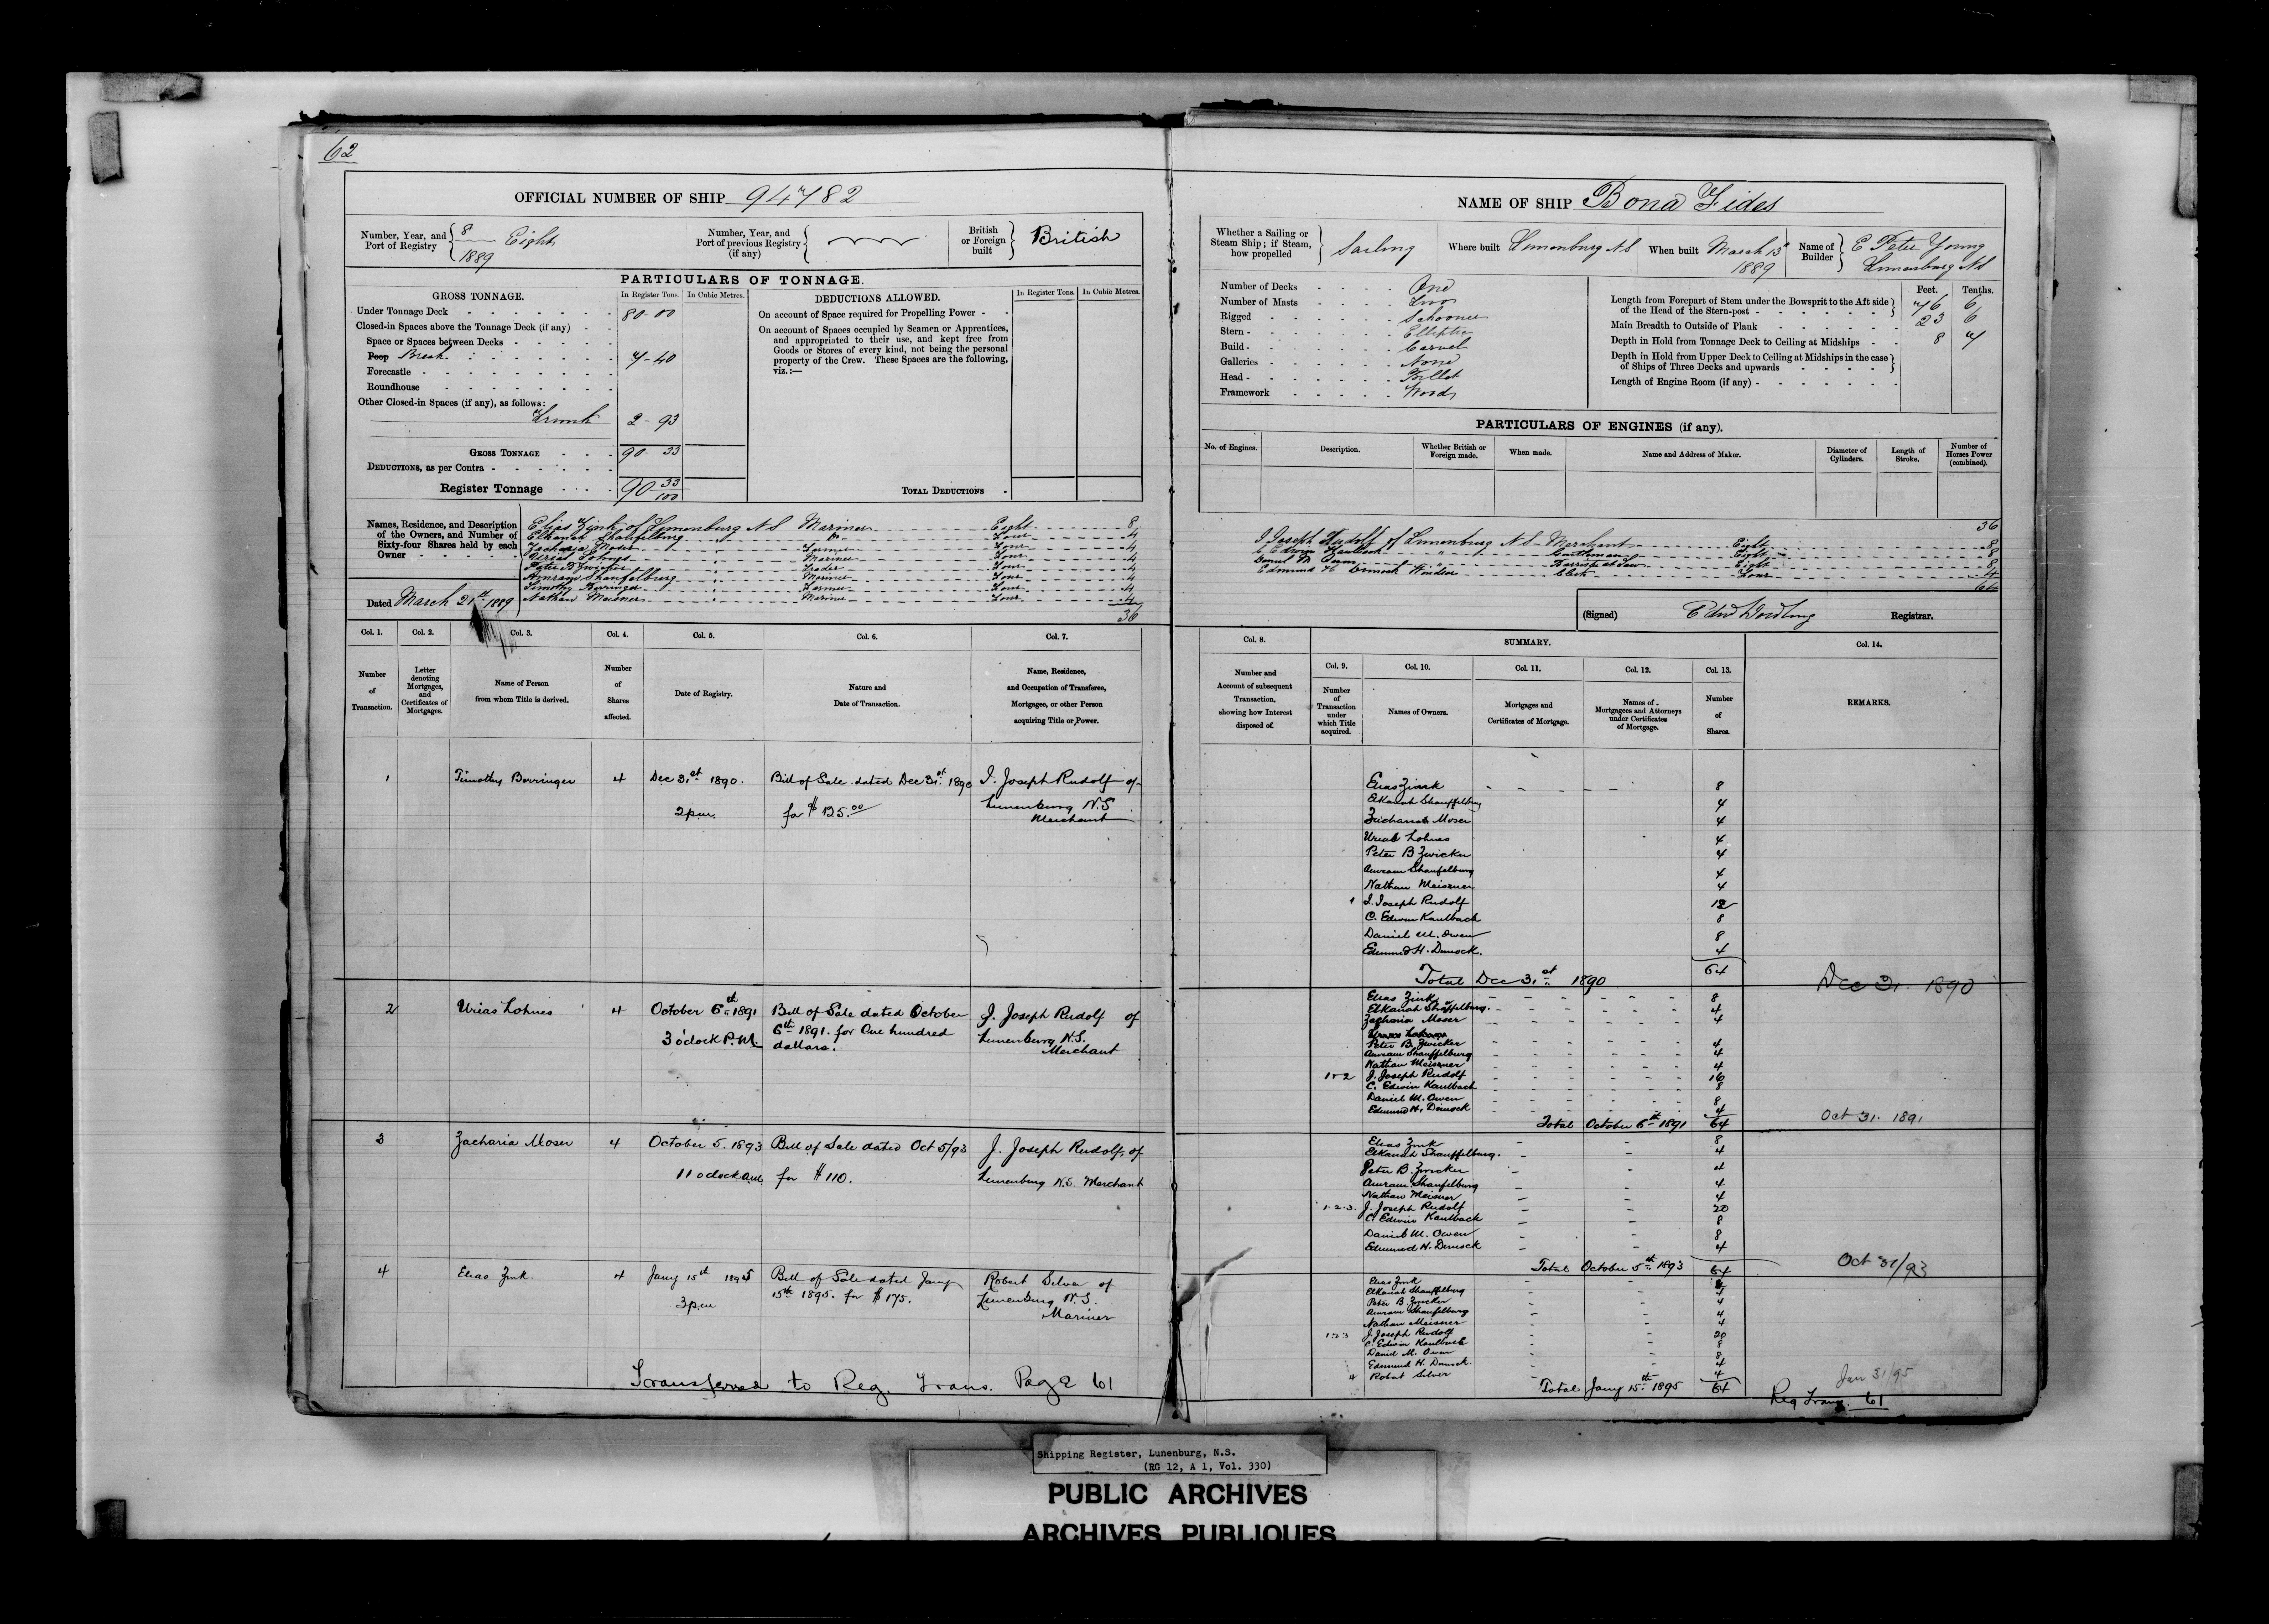 62
OFFICIAL NUMBER OF SHIP 94782
Number, Year, and Port of Registry 8 Eight 1889
Number, Year, and Port of previous Registry (if any)
British or Foreign built British
PARTICULARS OF TONNAGE.
GROSS TONNAGE.
In Register Tons. In Cubic Metres.
Under Tonnage Deck 80-00
Closed-in Spaces above the Tonnage Deck (if any)
Space or Spaces between Decks
Poop Break. 7-40
Forecastle
Roundhouse
Other Closed-in Spaces (if any), as follows:
Trunk 2-93
GROSS TONNAGE 90 33
DEDUCTIONS, as per Contra
Register Tonnage 90 33/100
DEDUCTIONS ALLOWED.
In Register Tons. In Cubic Metres.
On account of Space required for Propelling Power
On account of Spaces occupied by Seamen or Apprentices, and appropriated to their use, and kept free from Goods or Stores of every kind, not being the personal property of the Crew. These Spaces are the following, viz.:—
TOTAL DEDUCTIONS
Names, Residence, and Description of the Owners, and Number of Sixty-four Shares held by each Owner
Elias Zink of Lunenburg N S Mariner Eight 8
Elkanah Shaufelburg Four 4
Zacharia Moser Farmer Four 4
Urias Lohnes Mariner Four 4
Peter B Zwicker Trader Four 4
Amram Shaufelburg Mariner Four 4
Timothy Berringer Farmer Four 4
Nathan Meisner Mariner Four 4
36
Dated March 21st 1889
Col. 1. Col. 2. Col. 3. Col. 4. Col. 5. Col. 6. Col. 7.
Number of Transaction.
Letter denoting Mortgages, and Certificates of Mortgages.
Name of Person from whom Title is derived.
Number of Shares affected.
Date of Registry.
Nature and Date of Transaction.
Name, Residence, and Occupation of Transferee, Mortgagee, or other Person acquiring Title or Power.
1 Timothy Berringer 4 Dec 31st 1890. Bill of Sale dated Dec 31st 1890 J. Joseph Rudolf of
2 pm. for $125.00 Lunenburg N.S.
Merchant
2 Urias Lohnes 4 October 6th 1891 Bill of Sale dated October J. Joseph Rudolf of
3 o'clock P.M. 6th 1891. for One hundred Lunenburg N.S.
dollars. Merchant
3 Zacharia Moser 4 October 5. 1893 Bill of Sale dated Oct 5/93 J. Joseph Rudolf, of
11 oclock am for $110. Lunenburg N.S. Merchant
4 Elias Zink. 4 Jany 15th 1895 Bill of Sale dated Jany Robert Silver of
3 pm 15th 1895. for $175. Lunenburg N.S.
Mariner
Transferred to Reg. Trans. Page 61
NAME OF SHIP Bona Fides
Whether a Sailing or Steam Ship; if Steam, how propelled Sailing
Where built Lunenburg N S
When built March 13th 1889
Name of Builder E Peter Young Lunenburg N S
Number of Decks One
Number of Masts Two
Rigged Schooner
Stern Elliptic
Build Carvel
Galleries None
Head Billet
Framework Wood
Feet. Tenths.
Length from Forepart of Stem under the Bowsprit to the Aft side of the Head of the Stern-post 76 6
Main Breadth to Outside of Plank 23 6
Depth in Hold from Tonnage Deck to Ceiling at Midships 8 7
Depth in Hold from Upper Deck to Ceiling at Midships in the case of Ships of Three Decks and upwards
Length of Engine Room (if any)
PARTICULARS OF ENGINES (if any).
No. of Engines. Description. Whether British or Foreign made. When made. Name and Address of Maker. Diameter of Cylinders. Length of Stroke. Number of Horses Power (combined).
36
J Joseph Rudolf of Lunenburg N S Merchant Eight 8
C Edwin Kaulbach " Gentleman Eight 8
Daniel M Owen " Barrister at Law Eight 8
Edmund H Dimock Windsor Clerk Four 4
64
(Signed) Registrar.
Col. 8. SUMMARY. Col. 14.
Col. 9. Col. 10. Col. 11. Col. 12. Col. 13.
Number and Account of subsequent Transaction, showing how Interest disposed of.
Number of Transaction under which Title acquired.
Names of Owners.
Mortgages and Certificates of Mortgage.
Names of Mortgagees and Attorneys under Certificates of Mortgage.
Number of Shares.
REMARKS.
Elias Zink 8
Elkanah Shauffelburg 4
Zachariah Moser 4
Urias Lohnes 4
Peter B Zwicker 4
Amram Shaufelburg 4
Nathan Meisner 4
1 J. Joseph Rudolf 12
C. Edwin Kaulbach 8
Daniel M. Owen 8
Edmund H. Dimock. 4
Total Dec 31st 1890 64 Dec 31. 1890
Elias Zink 8
Elkanah Shaffelburg. 4
Zacharia Moser 4
Peter B. Zwicker 4
Amram Shauffelburg 4
Nathan Meisner 4
1-2 J. Joseph Rudolf 16
C. Edwin Kaulbach 8
Daniel M. Owen 8
Edmund H. Dimock 4
Total October 6th 1891 64 Oct 31. 1891
Elias Zink 8
Elkanah Shauffelburg. 4
Peter B. Zwicker 4
Amram Shaufelburg 4
Nathan Meisner 4
1.2.3. J. Joseph Rudolf 20
C. Edwin Kaulback 8
Daniel M. Owen 8
Edmund H. Dimock 4
Total October 5th 1893 64 Oct 31/93
Elias Zink 4
Elkanah Shauffelburg 4
Peter B Zwicker 4
Amram Shaufelburg 4
Nathan Meisner 4
1.2.3 J. Joseph Rudolf 20
C. Edwin Kaulbach 8
Daniel M. Owen 8
Edmund H. Dimock. 4
4 Robert Silver 4
Total Jany 15th 1895 64 Jan 31/95
Reg Trans. 61
Shipping Register, Lunenburg, N.S.
(RG 12, A 1, Vol. 330)
PUBLIC ARCHIVES
ARCHIVES PUBLIQUES